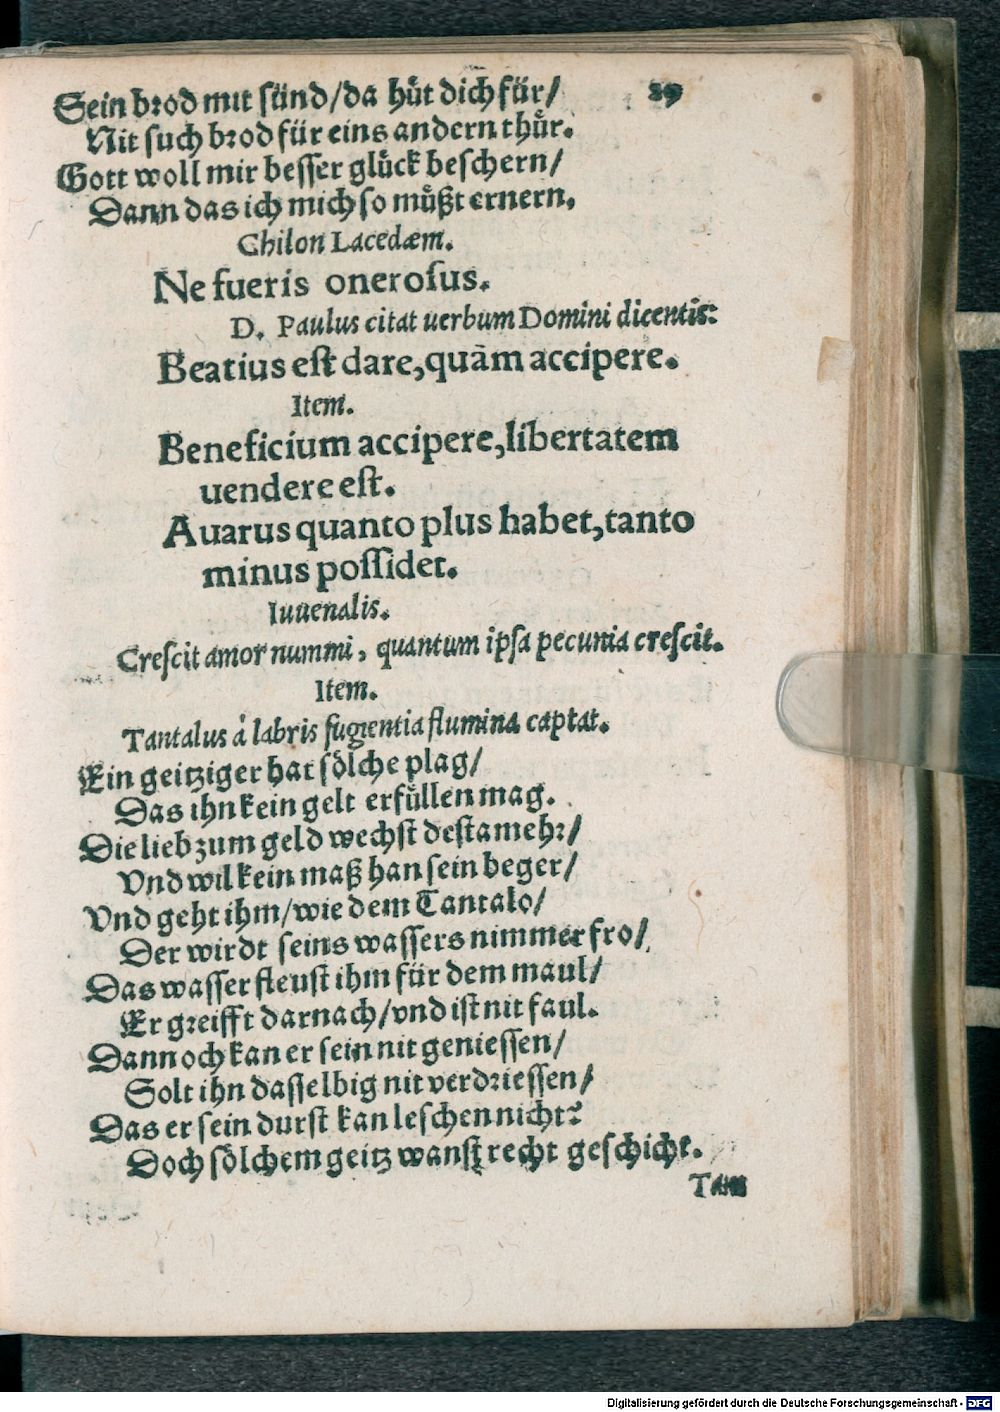 Sein brod mit sünd/da hůt dich für/ 29
Nit such brod für eins andern thůr.
Gott woll mir besser glůck beschern/
Dann das ich mich so můßt ernern.
Chilon Lacedæm.
Ne fueris onerosus.
D. Paulus citat uerbum Domini dicentis:
Beatius est dare, quàm accipere.
Item.
Beneficium accipere, libertatem
uendere est.
Auarus quanto plus habet, tanto
minus possidet.
Iuuenalis.
Crescit amor nummi, quantum ipsa pecunia crescit.
Item.
Tantalus à labris fugientia flumina captat.
Ein geitziger hat sölche plag/
Das ihn kein gelt erfůllen mag.
Die lieb zum geld wechst desta mehr/
Vnd wil kein maß han sein beger/
Vnd geht ihm/wie dem Tantalo/
Der wirdt seins wassers nimmer fro/
Das wasser fleust ihm für dem maul/
Er greifft darnach/vnd ist nit faul.
Dannoch kan er sein nit geniessen/
Solt ihn dasselbig nit verdriessen/
Das er sein durst kan leschen nicht?
Doch sölchem geitz wanst recht geschicht.
Tan
Digitalisierung gefördert durch die Deutsche Forschungsgemeinschaft - DFG